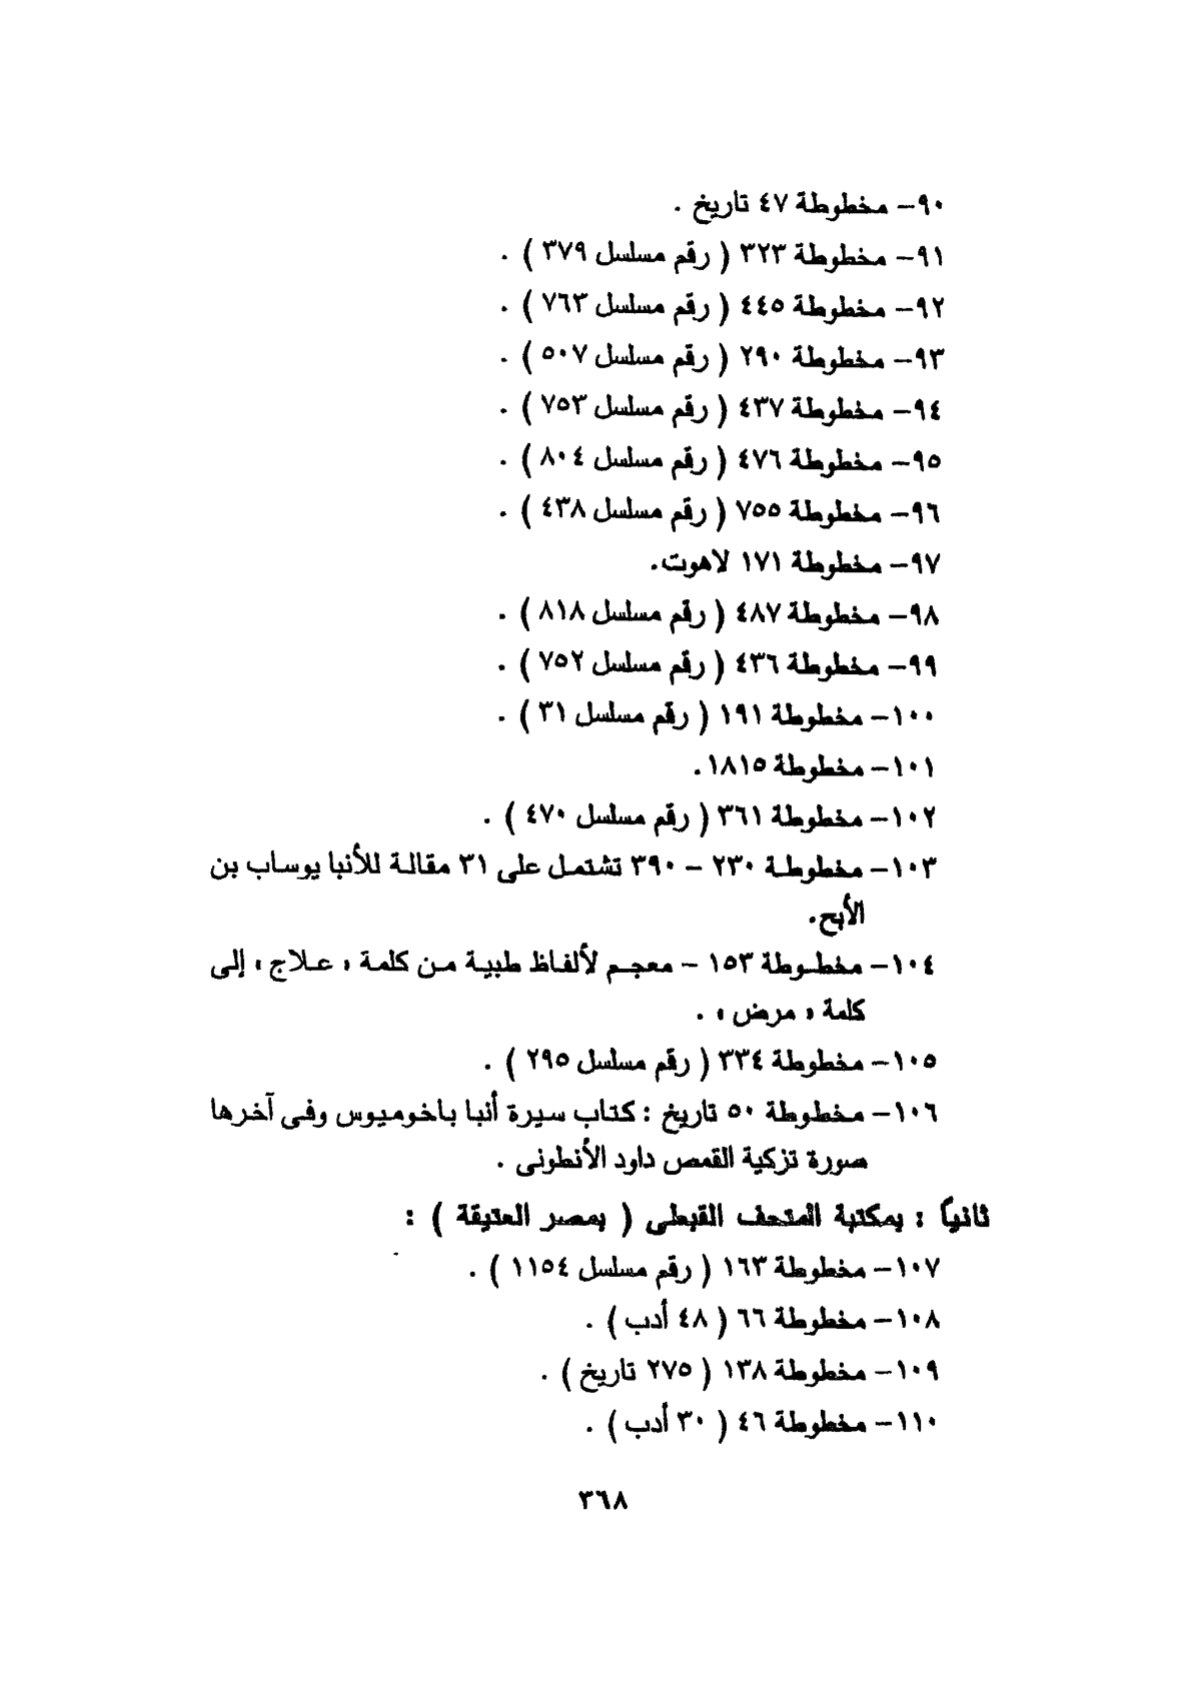 ٩٠- مخطوطة ٤٧ تاريخ .
٩١- مخطوطة ٣٢٣ ( رقم مسلسل ٣٧٩ ) .
٩٢- مخطوطة ٤٤٥ ( رقم مسلسل ٧٦٣ ) .
٩٣- مخطوطة ٢٩٠ ( رقم مسلسل ٥٠٧ ) .
٩٤- مخطوطة ٤٣٧ ( رقم مسلسل ٧٥٣ ) .
٩٥- مخطوطة ٤٧٦ ( رقم مسلسل ٨٠٤ ) .
٩٦- مخطوطة ٧٥٥ ( رقم مسلسل ٤٣٨ ) .
٩٧- مخطوطة ١٧١ لاهوت.
٩٨- مخطوطة ٤٨٧ ( رقم مسلسل ٨١٨ ) .
٩٩- مخطوطة ٤٣٦ ( رقم مسلسل ٧٥٢ ) .
١٠٠- مخطوطة ١٩١ ( رقم مسلسل ٣١ ) .
١٠١- مخطوطة ١٨١٥.
١٠٢- مخطوطة ٣٦١ ( رقم مسلسل ٤٧٠ ) .
١٠٣- مخطوطة ٢٣٠ – ٣٩٠ تشتمل على ٣١ مقالة للأنبا يوساب بن
الأبح.
١٠٤- مخطوطة ١٥٣ – معجم لألفاظ طبية من كلمة « علاج » إلى
كلمة « مرض » .
١٠٥- مخطوطة ٣٣٤ ( رقم مسلسل ٢٩٥ ) .
١٠٦- مخطوطة ٥٠ تاريخ : كتاب سيرة أنبا باخوميوس وفى آخرها
صورة تزكية القمص داود الأنطونى .
ثانياً : بمكتبة المتحف القبطى ( بمصر العتيقة ) :
١٠٧- مخطوطة ١٦٣ ( رقم مسلسل ١١٥٤ ) .
١٠٨- مخطوطة ٦٦ ( ٤٨ أدب ) .
١٠٩- مخطوطة ١٣٨ ( ٢٧٥ تاريخ ) .
١١٠- مخطوطة ٤٦ ( ٣٠ أدب ) .
٣٦٨